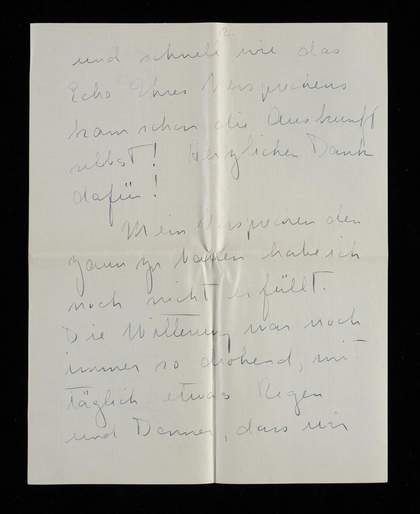 2.
und schnell wie das
Echo Ihres Versprechens
kam schon die Auskunft
selbst! Herzlichen Dank
dafür!
Mein Versprechen den
Zaun zu bauen habe ich
noch nicht erfüllt.
Die Witterung war noch
immer so drohend, mit
täglich etwas Regen
und Donner, dass wir